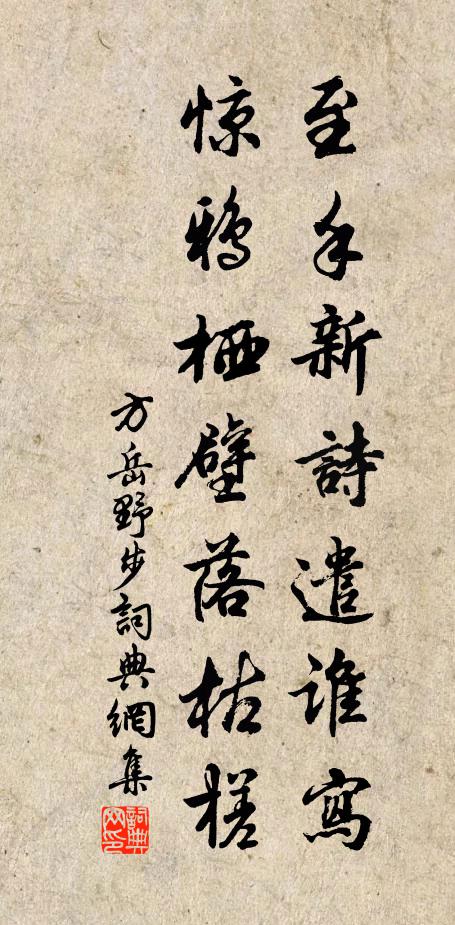 至手新詩遣誰寫
惊鴉栖壁落枯槎
方岳野步詞典網集
詞典
网印